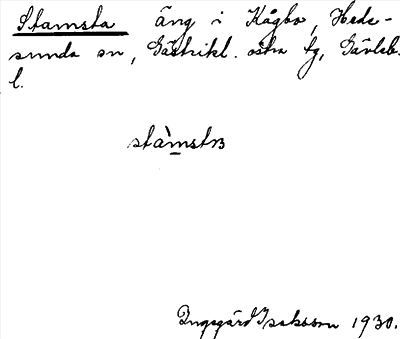 Stamsta äng i Kågbo, Hede-
sunda sn, Gästrikl. östra tg, Gävleb.
l.
stàmstɜ
Ingegärd Isaksson 1930.